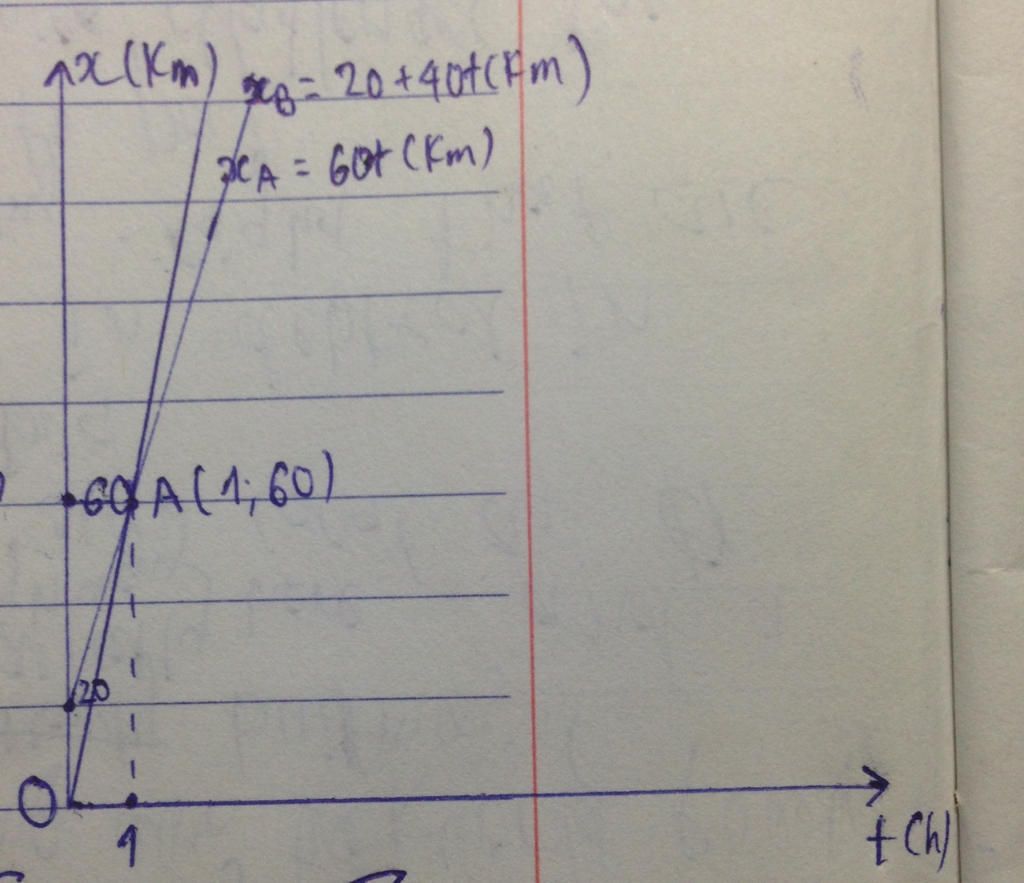 x(Km)
x_B = 20 + 40t (Km)
x_A = 60t (Km)
60 A(1; 60)
20
O
1
t(h)